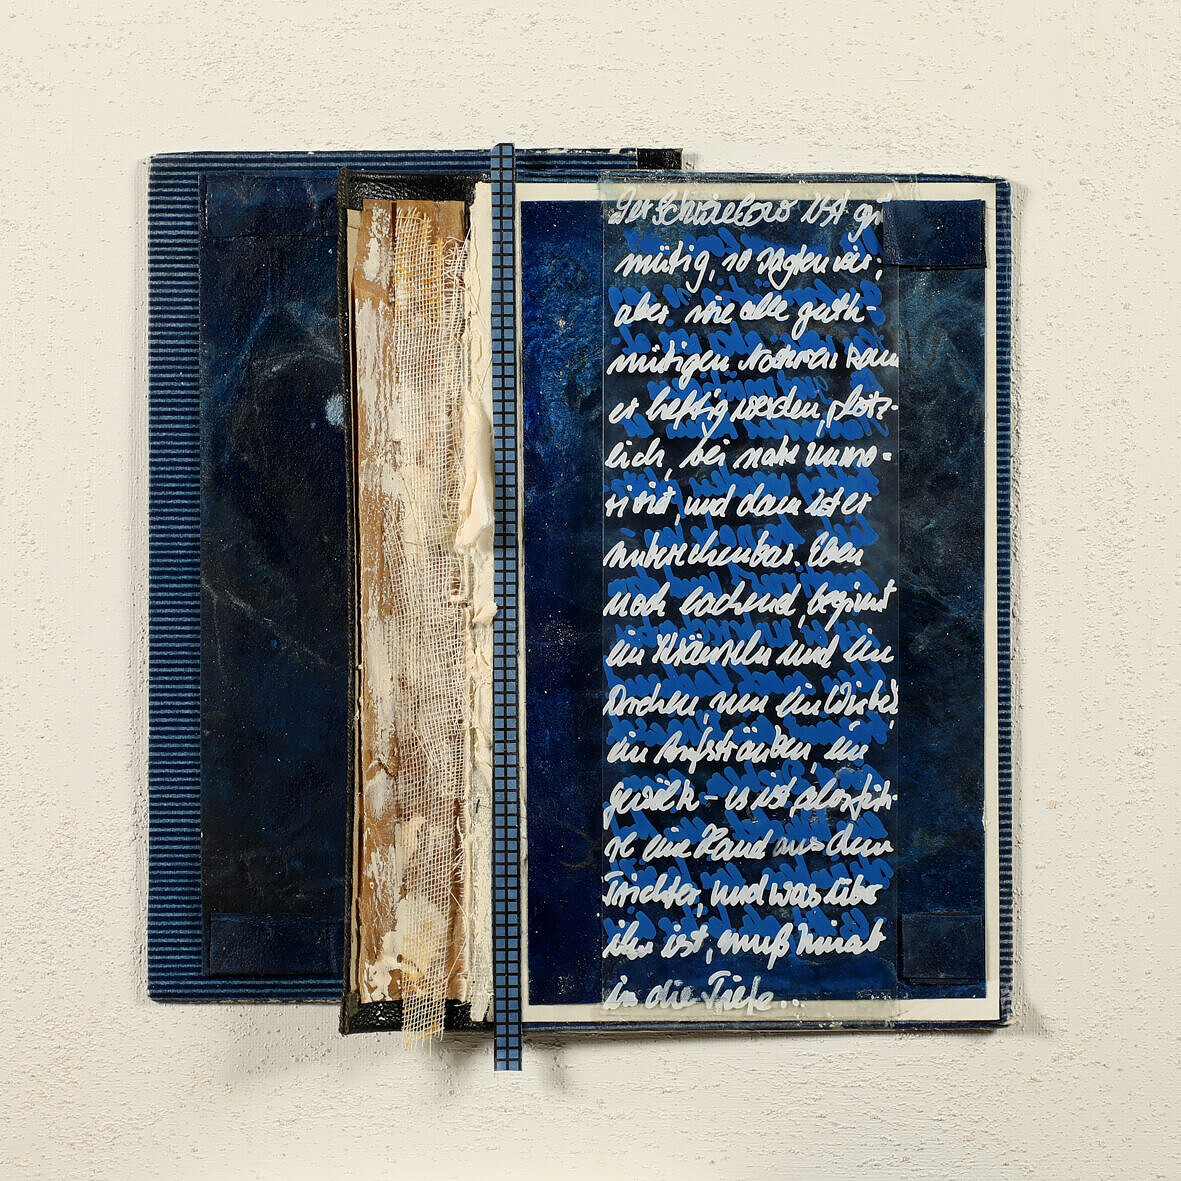 Der Schwielow ist gu
mütig, so sagten wir;
aber wie alle guth-
mütigen Naturen kann
er heftig werden, plötz-
lich, bei nahe unmo-
tiviert, und dann ist er
unberechenbar. Eben
noch lachend, beginnt
ein Kräuseln und ein
Drehen, nun ein Wirbel
ein Aufsträuben, ein
gewölk – es ist, als füh-
re eine Hand aus dem
Trichter, und was über
ihm ist, muß hinab
in die Tiefe...